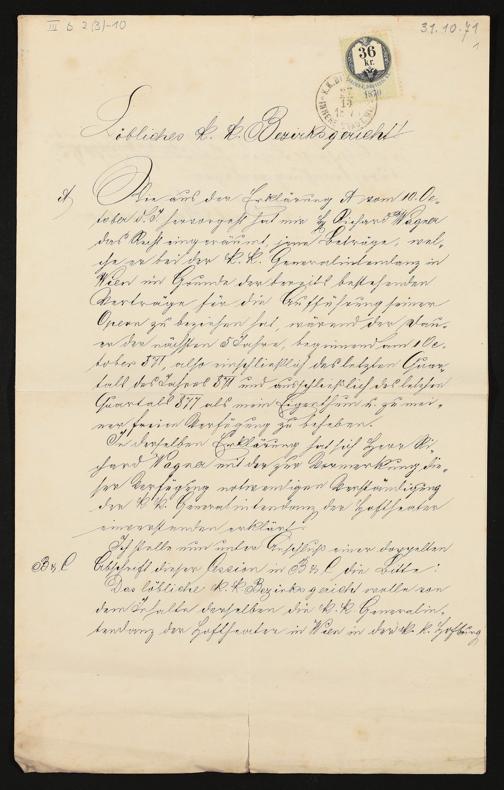 III b 2(3)-10
31.10.71
1
36
kr.
1870
Löbliches k. k. Bezirksgericht!
A) Wie aus der Erklärung A vom 10. Oc-
tober d. J. hervorgeht hat mir H. Richard Wagner
das Recht eingeräumt, jene Beträge, wel-
che er bei der k. k. Generalintendanz in
Wien im Grunde der bereits bestehenden
Verträge für die Aufführung seiner
Opern zu beziehen hat, während der Dau-
er der nächsten 5 Jahre, beginnend am 1 Oc-
tober 871, also einschließlich des letzten Quar-
tals des Jahres 871 und ausschließlich des letzten
Quartals 877 als mein Eigenthum u. zu mei-
ner freien Verfügung zu beheben.
In derselben Erklärung hat sich Herr Ri-
chard Wagner mit der zur Vormerkung die-
ser Verfügung notwendigen Verständigung
der k. k. Generalintendanz der Hoftheater
einverstanden erklärt.
Ich stelle nun unter Anschluß einer doppelten
B & C Abschrift dieser Cession in B & C die Bitte:
Das löbliche k. k. Bezirksgericht wolle von
dem Inhalte derselben die k. k. Generalin-
tendanz der Hoftheater in Wien in der k. k. Hofburg